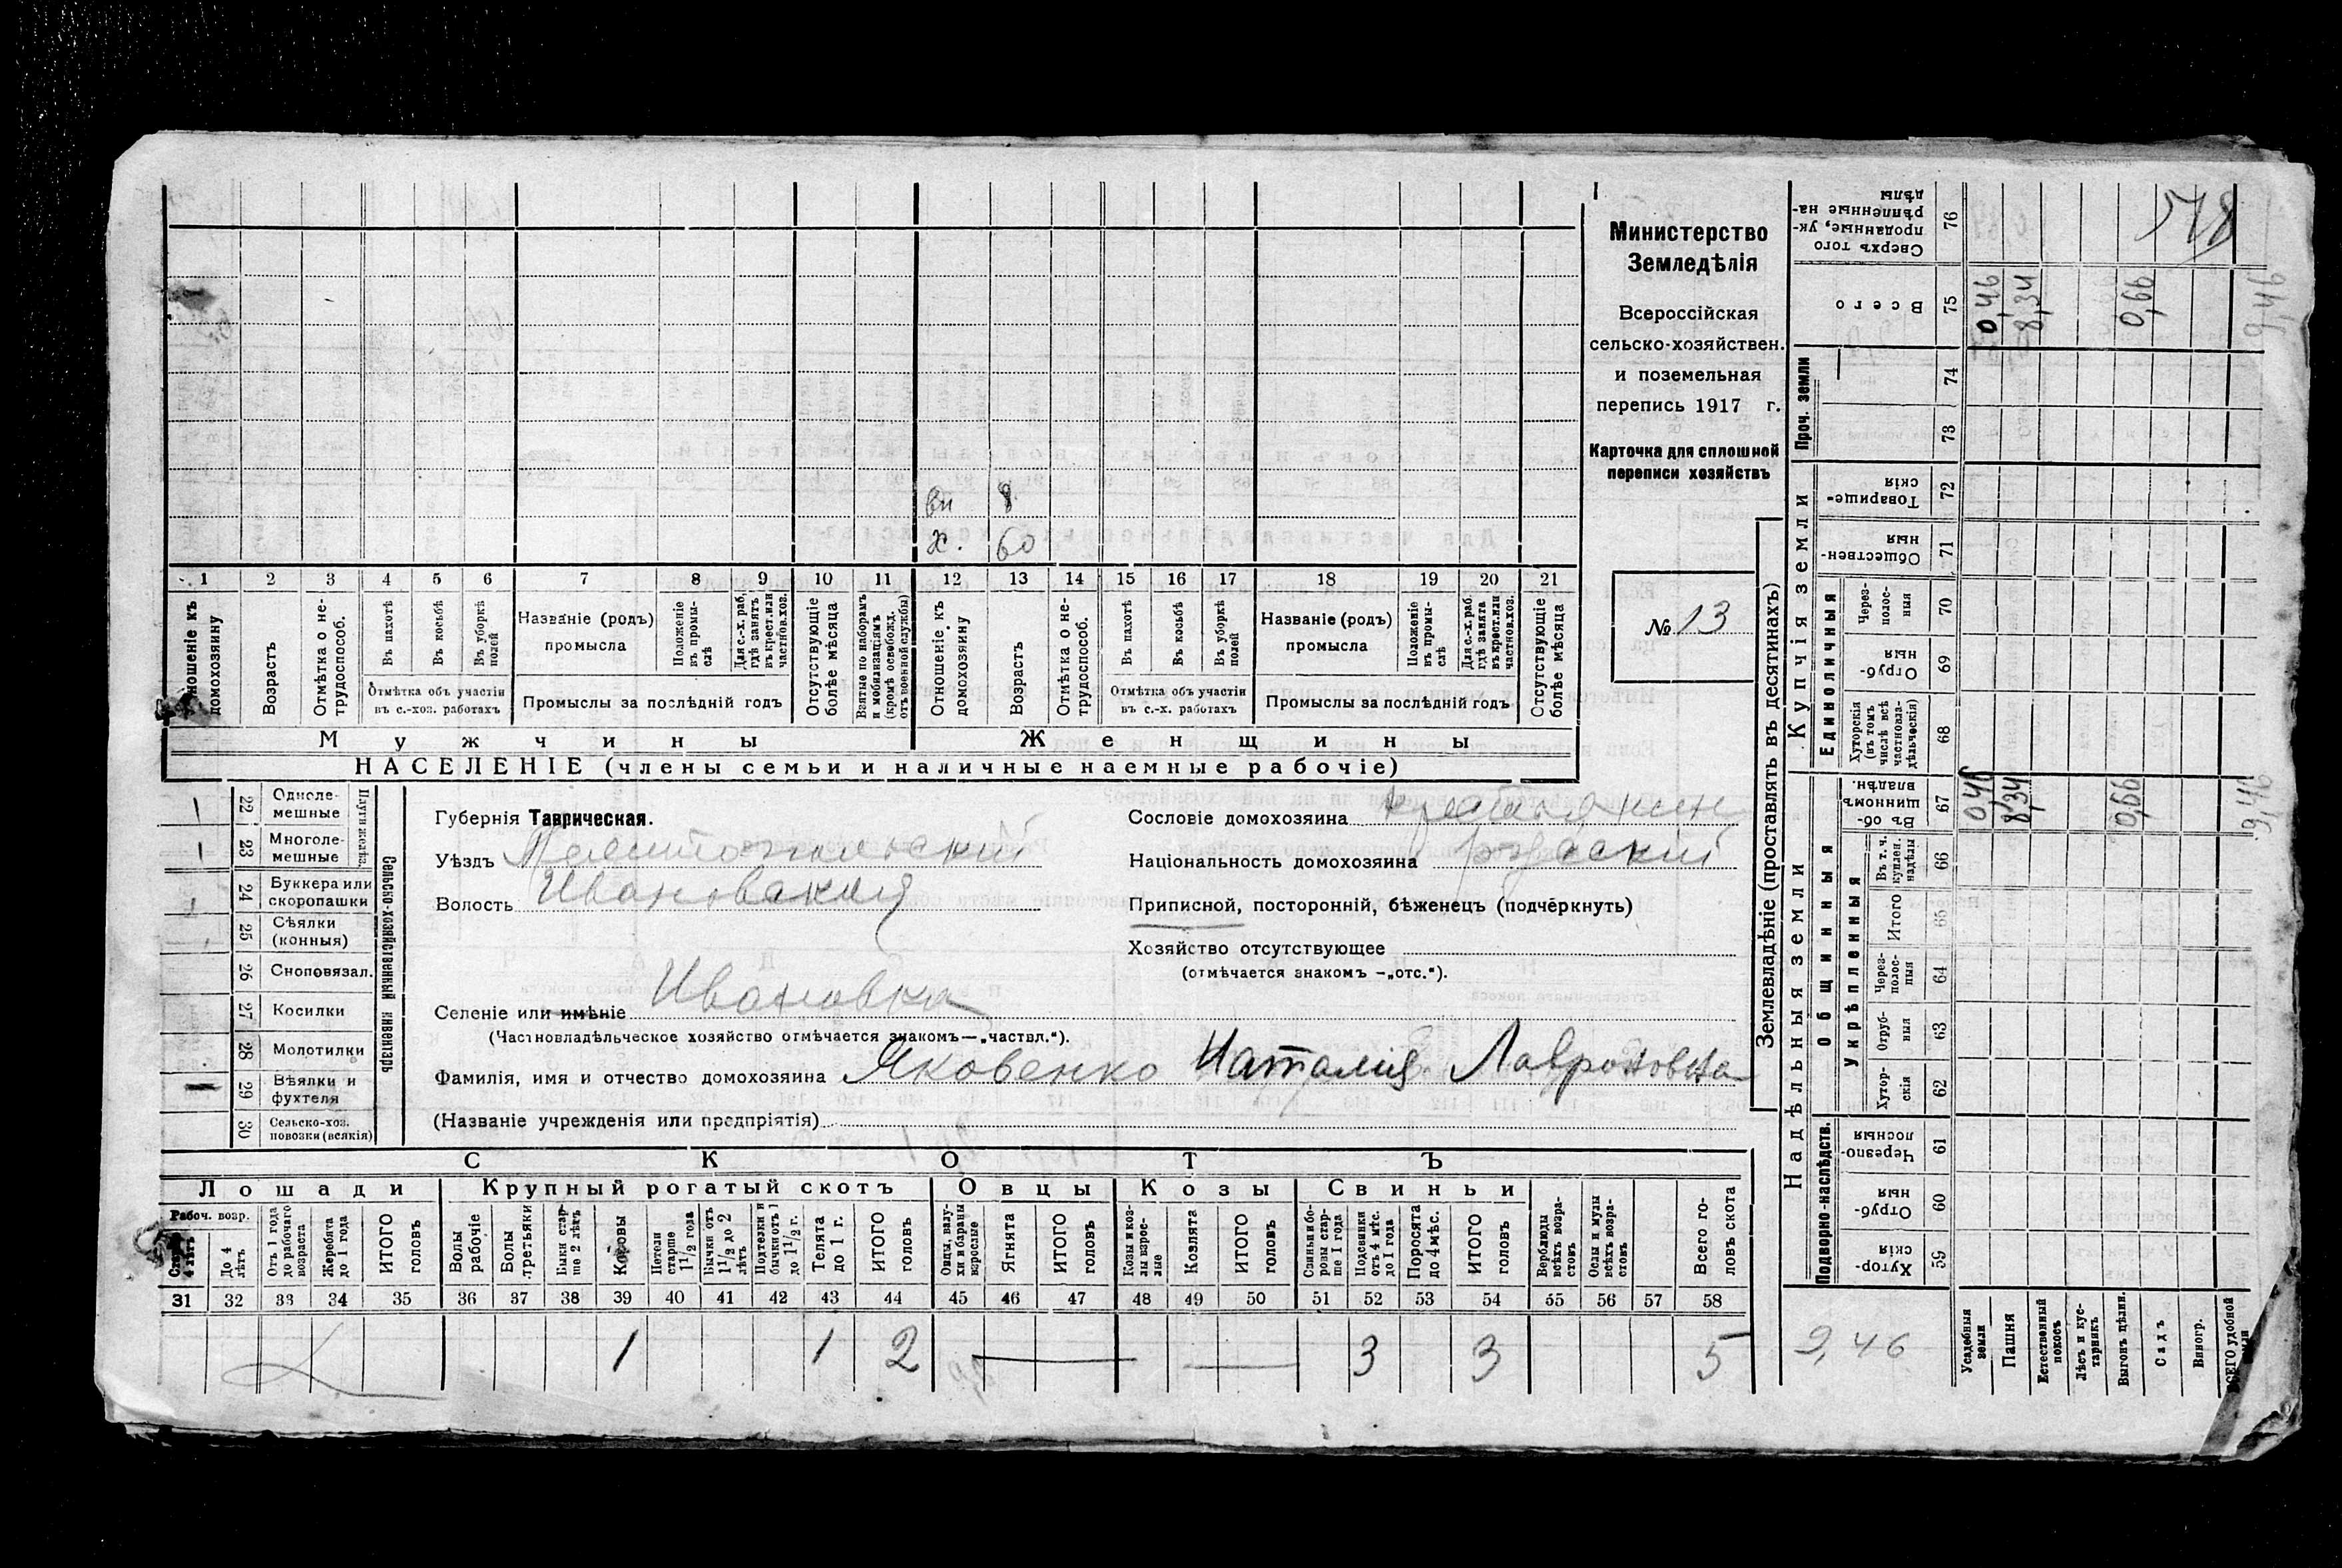 Министерство
Земледѣлія
Всероссійская
сельско-хозяйствен.
и поземельная
перепись 1917 г.
Карточка для сплошной
переписи хозяйствъ
№ 13
вн 8
х. 60
1 2 3 4 5 6 7 8 9 10 11 12 13 14 15 16 17 18 19 20 21
Отношеніе къ домохозяину
Возрастъ
Отмѣтка о не-трудоспособ.
Въ пахотѣ
Въ косьбѣ
Въ уборкѣ полей
Отмѣтка объ участіи
въ с.-хоз. работахъ
Названіе (родъ)
промысла
Положеніе въ промы-слѣ
Для с.-х. раб, гдѣ занятъ в крест. или частнов. хоз.
Промыслы за послѣдній годъ
Отсутствующіе болѣе мѣсяца
Взятые по наборамъ и мобилизаціямъ (кромѣ освобожд. отъ военной службы)
Отношеніе къ домохозяину
Возрастъ
Отмѣтка о не-трудоспособ.
Въ пахотѣ
Въ косьбѣ
Въ уборкѣ полей
Отмѣтка объ участіи
въ с.-х. работахъ
Названіе (родъ)
промысла
Положеніе въ промы-слѣ
Для с.-х. раб. гдѣ занята въ крест. или частнов. хоз.
Промыслы за послѣдній годъ
Отсутствующіе болѣе мѣсяца
Мужчины Женщины
НАСЕЛЕНІЕ (члены семьи и наличные наемные рабочіе)
22 Одноле-мешные
23 Многоле-мешные
Плуги желѣз.
24 Буккера или скоропашки
25 Сѣялки (конныя)
26 Сноповязал.
27 Косилки
28 Молотилки
29 Вѣялки и фухтеля
30 Сельско-хоз. повозки (всякія)
Сельско-хозяйственный инвентарь
Губернія Таврическая.
Уѣздъ Мелитопольский
Волость Ивановская
Селеніе или имѣніе Ивановка
(Частновладѣльческое хозяйство отмѣчается знакомъ—„частвл.“).
Фамилія, имя и отчество домохозяина Яковенко Наталия Лавроновна
(Названіе учрежденія или предпріятія)
Сословіе домохозяина крестьянин
Національность домохозяина русский
Приписной, посторонній, бѣженецъ (подчеркнуть)
Хозяйство отсутствующее
(отмѣчается знакомъ —„отс.“).
СКОТЪ
Лошади Крупный рогатый скотъ Овцы Козы Свиньи
Рабоч. возр.
Старше 4 лѣтъ
До 4 лѣтъ
Отъ 1 года до рабочаго возраста
Жеребята до 1 года
ИТОГО головъ
Волы рабочіе
Волы третьяки
Быки стар-ше 2 лѣтъ
Коровы
Нетели старше 1 1/2 года
Бычки отъ 1 1/2 до 2 лѣтъ
Подтелки и бычки отъ 1 до 1 1/2 г.
Телята до 1 г.
ИТОГО головъ
Овцы, валу-хи и бараны взрослые
Ягнята
ИТОГО головъ
Козы и коз-лы взрос-лые
Козлята
ИТОГО головъ
Свиньи и бо-ровы стар-ше 1 года
Подсвинки отъ 4 мѣс. до 1 года
Поросята до 4 мѣс.
ИТОГО головъ
Верблюды всѣхъ возра-стовъ
Ослы и мулы всѣхъ возра-стовъ
Всего го-ловъ скота
31 32 33 34 35 36 37 38 39 40 41 42 43 44 45 46 47 48 49 50 51 52 53 54 55 56 57 58
1 1 2 3 3 5
Землевладѣніе (проставлять въ десятинахъ)
Надѣльныя земли Купчія земли Проч. земли
Подворно-наслѣдств.
Общинныя
Укрѣпленныя
Единоличныя
Хутор-скія 59
Отруб-ныя 60
Черезпо-лосныя 61
Хутор-скія 62
Отруб-ныя 63
Через-полос-ныя 64
Итого 65
Въ т. ч. куплен. надѣлы 66
Въ об-щинномъ владѣн. 67
Хуторскія (въ томъ числѣ всѣ частновла-дѣльческія) 68
Отруб-ныя 69
Через-полос-ныя 70
Обществен-ныя 71
Товарище-скія 72
73
74
Всего 75
Сверхъ того проданные, ук-рѣпленные на-дѣлы 76
Усадебныя земли
Пашня
Естественный покосъ
Лѣсъ и кус-тарникъ
Выгонъ цѣлин.
Садъ
Виногр.
ВСЕГО удобной земли
0,46 8,34 0,66 9,46
0,46 8,34 0,66 9,46
9,46
518